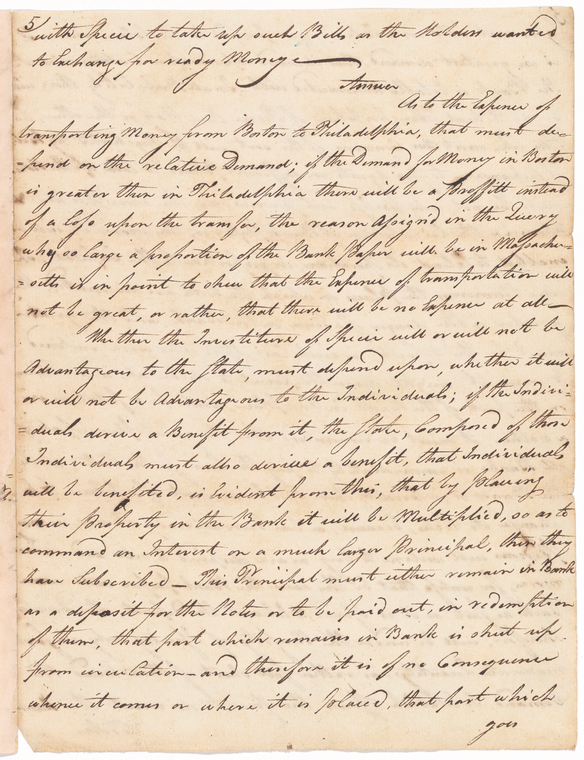 5/
with Specie to take up such Bills as the Holders wanted
to Exchange for ready Money —
Answer
As to the Expence of
transporting Money from Boston to Philadelphia, that must de-
-pend on the relative Demand; if the Demand for Money in Boston
is greater then in Philadelphia there will be a proffitt instead
of a loss upon the transfer, the reason assign'd in the Query
why so large a proportion of the Bank Paper will be in Massachu=
=setts is in point to shew that the Expence of transportation will
not be great, or rather, that there will be no Expence at all —
Whether the Investiture of Specie will or will not be
Advantageous to the State, must depend upon, whether it will
or will not be Advantageous to the Individuals; if the Indivi=
=duals derive a Benefit from it, the State, Composed of those
Individuals must also derive a benefit, that Individuals
will be benefited, is Evident from this, that by placing
their Property in the Bank it will be Multiplied, so as to
command an Interest on a much larger Principal, then they
have Subscribed — This Principal must either remain in Bank
as a deposit for the Notes or to be paid out, in redemption
of them, that part which remains in Bank is shut up
from circulation — and therefore it is of no Consequence
whence it comes or where it is placed, that part which
goes